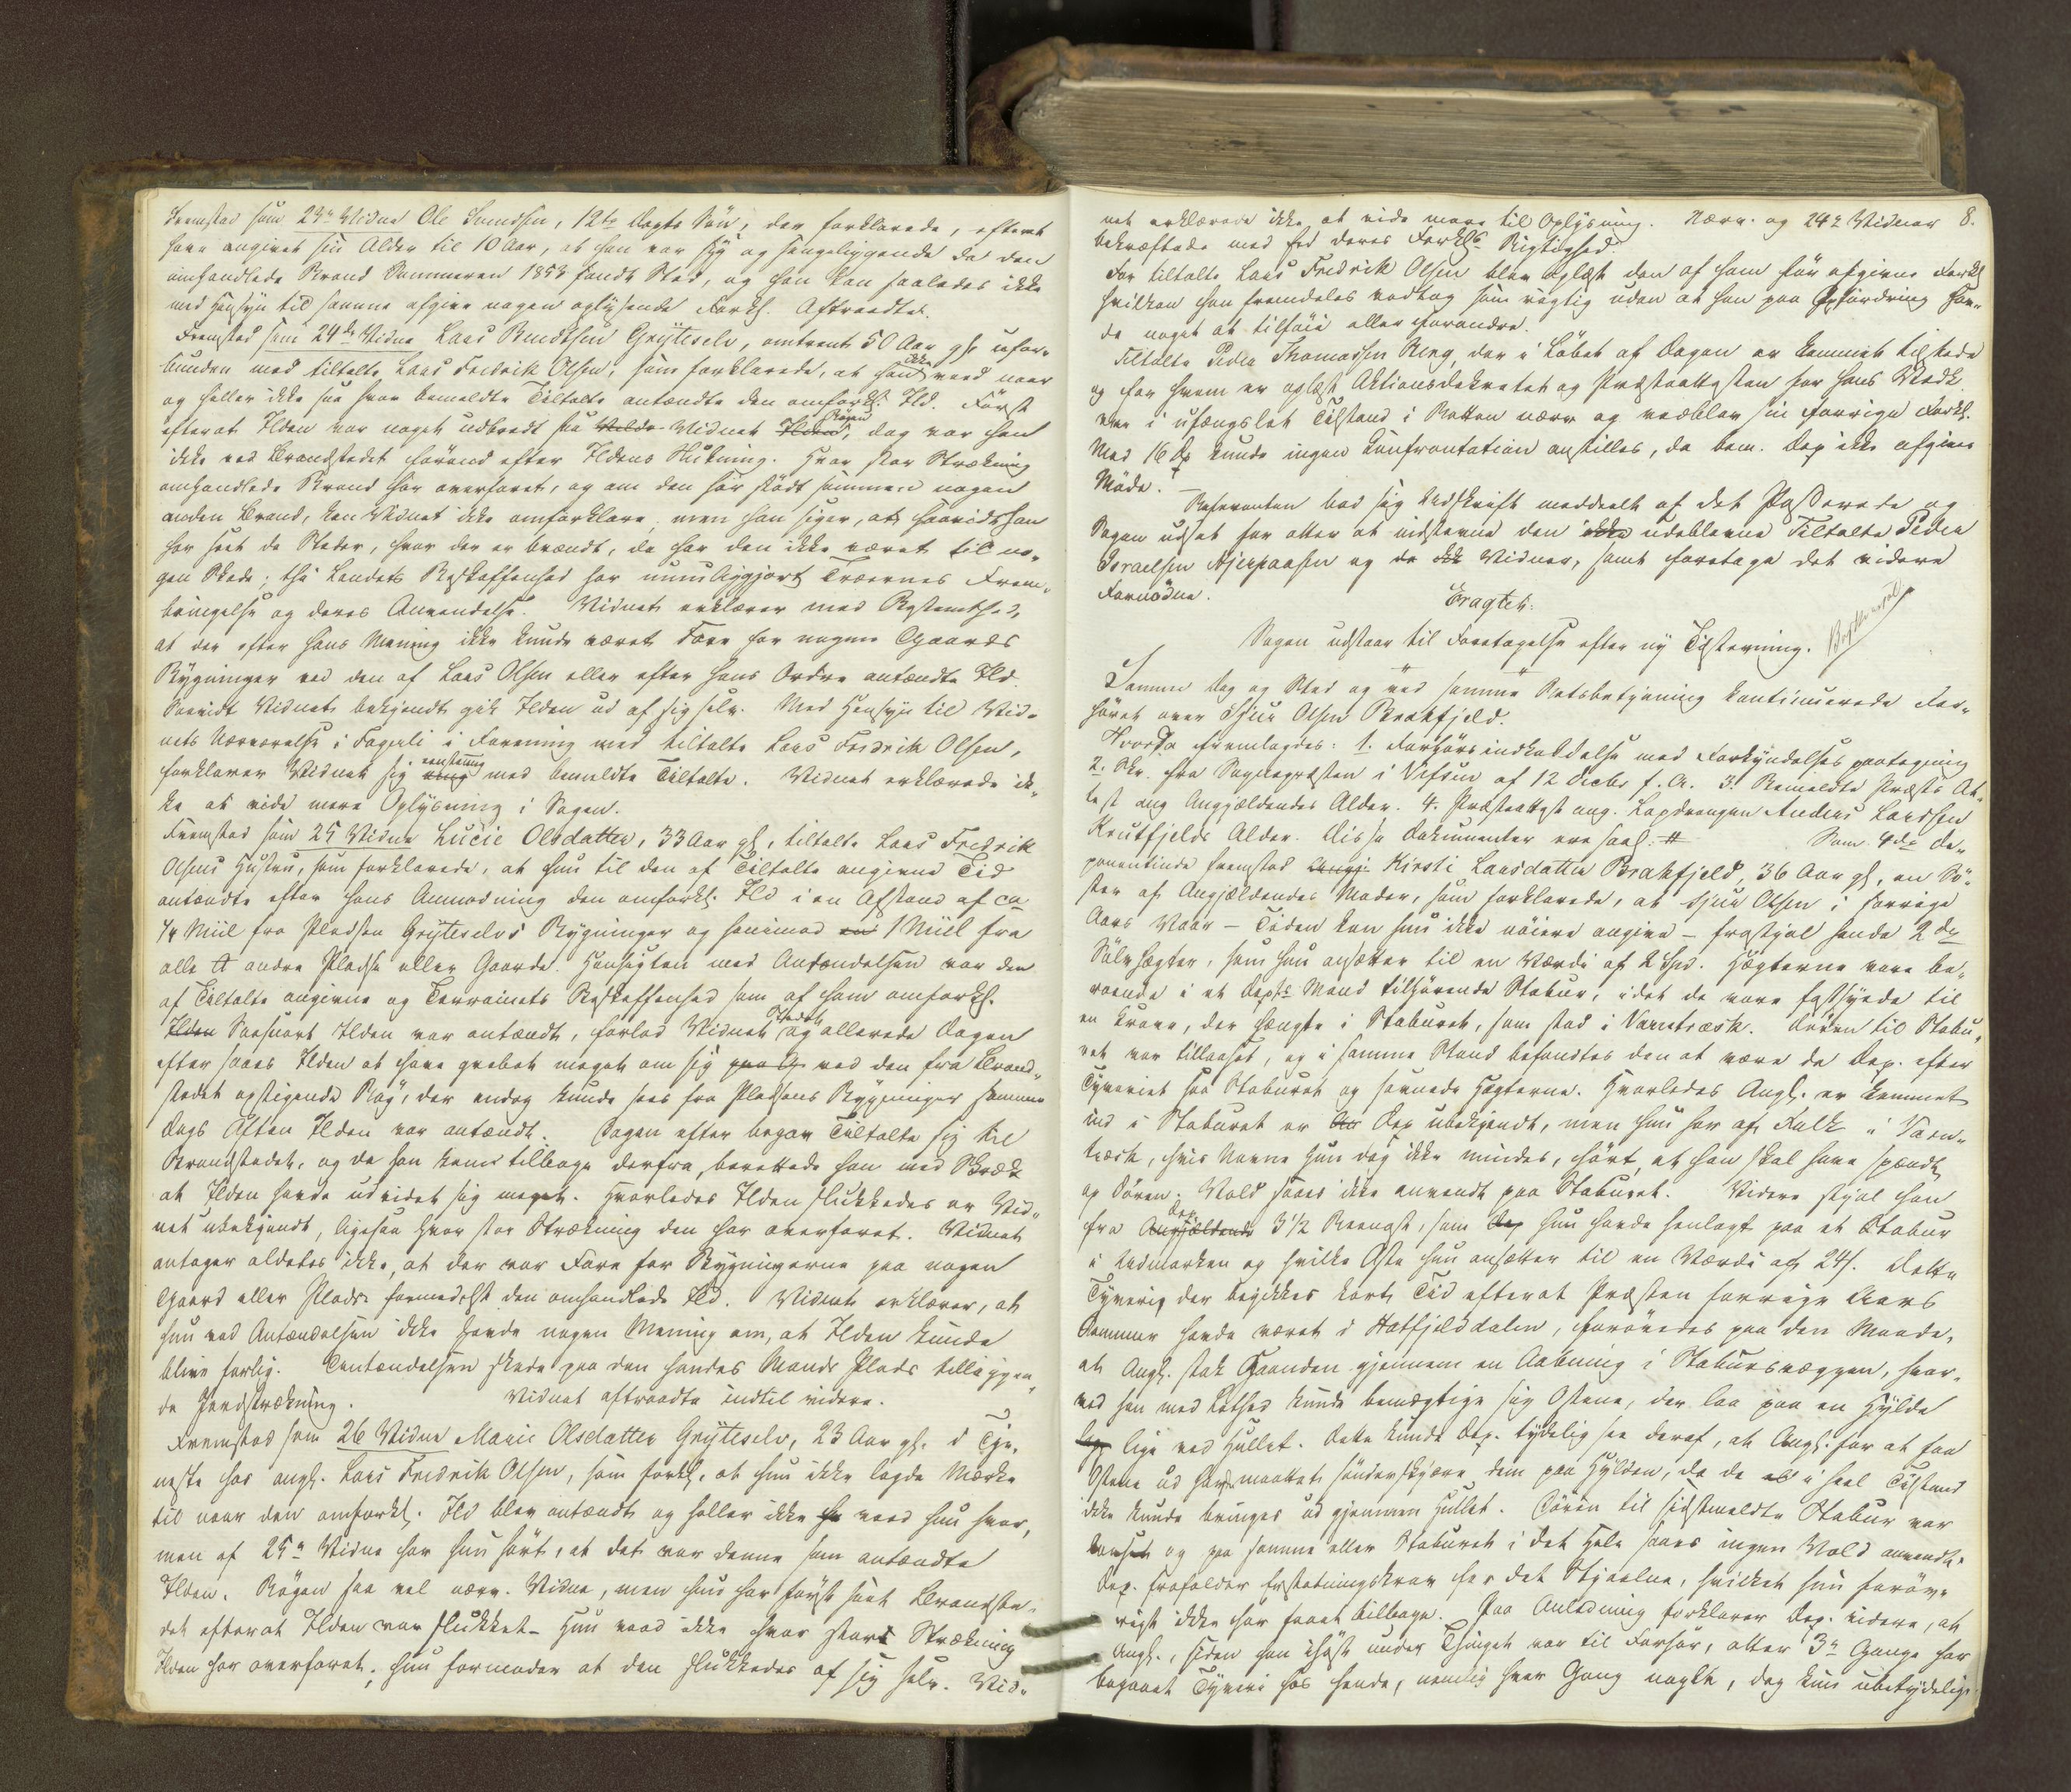 Fremstod som 23de Vidne Ole Svendsen, 12te Depts Søn, der forklarede, efterat
have angivet sin Alder til 10 Aar, at han var syg og sengeliggende da den
omhandlede Brand Sommeren 1853 fandt Sted, og han kan saaledes ikke
med Hensyn til samme afgive nogen oplysende Forkl. Aftraadte.
Fremstod som 24de Vidne Lars Bendtsen Grytteselv, omtrent 50 Aar gl. ufor-
bunden med tiltalte Lars Fredrik Olsen, som forklarede, at han ikke veed naar
og heller ikke saa hvor bemeldte Tiltalte antændte den omforkl. Ild. Først
efterat Ilden var noget udbredt saa Vidnet Røgen, dog var han
ikke ved Brandstedet førend efter Ildens Slukning. Hvor stor Strækning
omhandlede Brand har overfaret, og om den har stødt sammen nogen
anden Brand, kan Vidnet ikke omforklare, men han siger, at saavidt han
har seet de Steder, hvor der er brændt, da har den ikke været til no-
gen Skade; thi Landets Beskaffenhed har umuliggjort Træernes Frem-
bringelse og deres Anvendelse. Vidnet erklærer med Bestemthed,
at der efter hans Mening ikke kunde været Fare for nogen Gaards
Bygninger ved den af Lars Olsen eller efter hans Ordre antændte Ild.
Saavidt Vidnet bekjendt gik Ilden ud af sig selv. Med Hensyn til Vid-
nets Nærværelse i Fagerli i Forening med tiltalte Lars Fredrik Olsen,
forklarer Vidnet sig eenstemig med bemeldte Tiltalte. Vidnet erklærede ik-
ke at vide mere Oplysning i Sagen.
Fremstod som 25 Vidne Lucie Olsdatter, 33 Aar gl., tiltalte Lars Fredrik
Olsens Hustru, som forklarede, at hun til den af Tiltalte angivne Tid
antændte efter hans Anmodning den omforkl. Ild i en Afstand af ca
1/4 Miil fra Pladsen Grytteselvs Bygninger og henimod en 1 Miil fra
alle andre Pladse eller Gaarde. Hensigten med Antændelsen var den
af Tiltalte angivne og Terrainets Beskaffenhed som af ham omforkl.
Ilden Saasnart Ilden var antændt, forlod Vidnet Stedet og allerede Dagen
efter saaes Ilden at have grebet meget om sig ved den fra Brand-
stedet opstigende Røg, der endog kunde sees fra Pladsens Bygninger samme
Dags Aften Ilden var antændt. Dagen efter begav Tiltalte sig til
Brandstedet, og da han kom tilbage derfra, berettede han med Skræk
at Ilden havde udvidet sig meget. Hvorledes Ilden slukkedes er Vid-
net ubekjendt, ligesaa hvor stor Strækning den har overfaret. Vidnet
antager aldeles ikke, at der var Fare for Bygningerne paa nogen
Gaard eller Plads formedelst den omhandlede Ild. Vidnet erklærer, at
hun ved Antændelsen ikke havde nogen Mening om, at Ilden kunde
blive farlig. Antændelsen skede paa den hendes Mands Plads tilliggen-
de Jordstrækning. Vidnet aftraadte indtil videre.
Fremstod som 26 Vidne Marie Olsdatter Grytteselv, 23 Aar gl. i Tje-
neste hos angl. Lars Fredrik Olsen, som forkl., at hun ikke lagde Mærke
til naar den omforkl. Ild blev antændt og heller ikke veed hun hvor,
men af 25de Vidne har hun hørt, at det var denne som antændte
Ilden. Røgen saa vel nærv. Vidne, men hun har først seet Brandste-
det efterat Ilden var slukket. Hun veed ikke hvor stor Strækning
Ilden har overfaret; hun formoder at den slukkedes af sig selv. Vid-
net erklærede ikke at vide mere til Oplysning. Nærv. og 24de Vidner 8.
bekræftede med Ed deres Forkls Rigtighed.
For tiltalte Lars Fredrik Olsen blev oplæst den af ham før afgivne Forkl
hvilken han fremdeles vedtog som rigtig uden at han paa Opfordring hav-
de noget at tilføie eller forandre.
Tiltalte Peder Thomassen Berg, der i Løbet af Dagen er kommet tilstede
og for hvem er oplæst Aktionsdekretet og Præsteattesten for hans Vedk.
var i ufængslet Tilstand i Retten nærv. og vedblev sin forrige Forkl.
Med 16 Dep kunde ingen Confrontation anstilles, da bem. Dep ikke afgiver
Møde. —
Referenten bad sig Udskrift meddeelt af det Passerede og
Sagen udsat for atter at indstevne den udeblevne Tiltalte Peder
Israelsen og Vidner, samt foretage det videre
Fornødne.
Eragtet:
Sagen udstaar til Foretagelse efter ny Tilstevning.
Samme Dag og Sted og ved samme Retsbetjening kontinuerede For-
høret over Sjur Olsen Brakfjeld.
Hvorda fremlagdes: 1. Forhørsindkaldelse med Forkyndelses paategning
2. Skr. fra Sognepræsten i Vefsen af 12 Decbr f. A. 3. Bemeldte Præsts At-
test ang Angjældendes Alder. 4. Præsteattest ang. Lapdrengen Anders Larssen
Krutfjelds Alder. Disse Dokumenter ere saal: # Som 4de de-
ponentinde fremstod Kirsti Larsdatter Brakfjeld, 36 Aar gl., en Sø-
ster af Angjældendes Moder, som forklarede, at Sjur Olsen i forrige
Aars Vaar – Tiden kan hun ikke nøiere angive – frastjal hende 2de
Sølvhægter, som hun ansætter til en Værdi af 2 Spd. Hægterne vare be-
roende i et Depts Mand tilhørende Stabur, idet de vare fastsyede til
en Krave, der hængte i Staburet, som stod i Varntræsk. Døren til Stabu-
ret var tillaaset, og i samme Stand befandtes den at være da Dep. efter
Tyveriet saa Staburet og savnede Hægterne. Hvorledes Angl. er kommet
ind i Staburet er Dep ubekjendt, men hun har af Folk i Varn-
træsk, hvis Navne hun dog ikke mindes, hørt, at han skal have spændt
op Døren. Vold saaes ikke anvendt paa Staburet. Videre stjal han
fra Dep. 3 1/2 Reenost, som hun havde henlagt paa et Stabur
i Udmarken og hvilke Oste hun ansætter til en Værdi af 24 s. Dette
Tyveri, der begikkes kort Tid efterat Præsten forrige Aars
Sommer havde været i Hatfjelddalen, forøvedes paa den Maade,
at Angl. stak Haanden gjennem en Aabning i Staburvæggen, hvor-
ved han med Lethed kunde bemægtige sig Ostene, der laa paa en Hylde
lige ved Hullet. Dette kunde Dep. tydelig see deraf, at Angl. for at faa
Ostene ud havde maattet sønderskjære dem paa Hylden, da de i heel Tilstand
ikke kunde bringes ud gjennem Hullet. Døren til sidstmeldte Stabur var
laaset og paa samme eller Staburet i det Hele saaes ingen Vold anvendt.
Dep. frafalder Erstatningskrav for det Stjaalne, hvilket hun forøv-
rigt ikke har faaet tilbage. Paa Anledning forklarer Dep. videre, at
Angl., siden han ihøst under Thinget var til Forhør, atter 3de Gange har
begaaet Tyveri hos hende, nemlig hver Gang nogle, dog kun ubetydelige